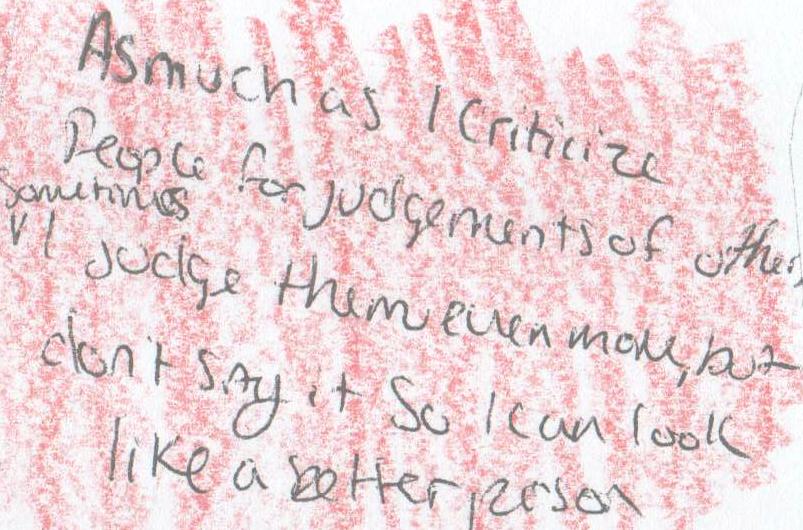 As much as I criticize
People for judgements of others
sometimes
V I judge them even more, but
don't say it so I can look
like a better person